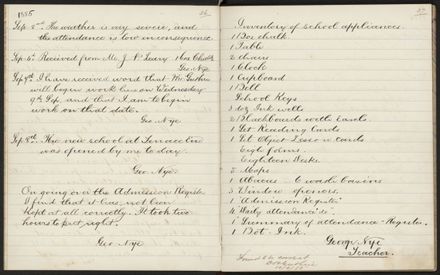 1885
26
Sep 5th. The weather is very severe, and
the attendance is low in consequence.
Sep 5th Received from Mr. J. P. Leary 1 box Chalk
Geo Nye
Sep 7th. I have received word that Mr. Guthrie
will begin work here on Wednesday
9th Sep and that I am to begin
work on that date.
Geo Nye
Sep 9th. The new school at
was opened by me to day.
Geo. Nye.
On going over the Admission Register
I find that it has not been
kept at all correctly. It took two
hours to put right.
Geo. Nye
27
Inventory of school appliances.
1 Box chalk
1 Table
2 chairs
1 Clock
1 Cupboard
1 Bell
School Keys
3 doz Ink wells
2 Blackboards with easels.
1 Set Reading Cards
1 Set Object Lesson cards
Eight forms.
Eighteen Desks
2 Maps
1 Abacus - 6 wash basins
3 Window openers.
1 Admission Register
4 Daily attendance do.
1 Summary of attendance Register.
1 Bot. Ink.
George Nye
Teacher.
Found to be correct